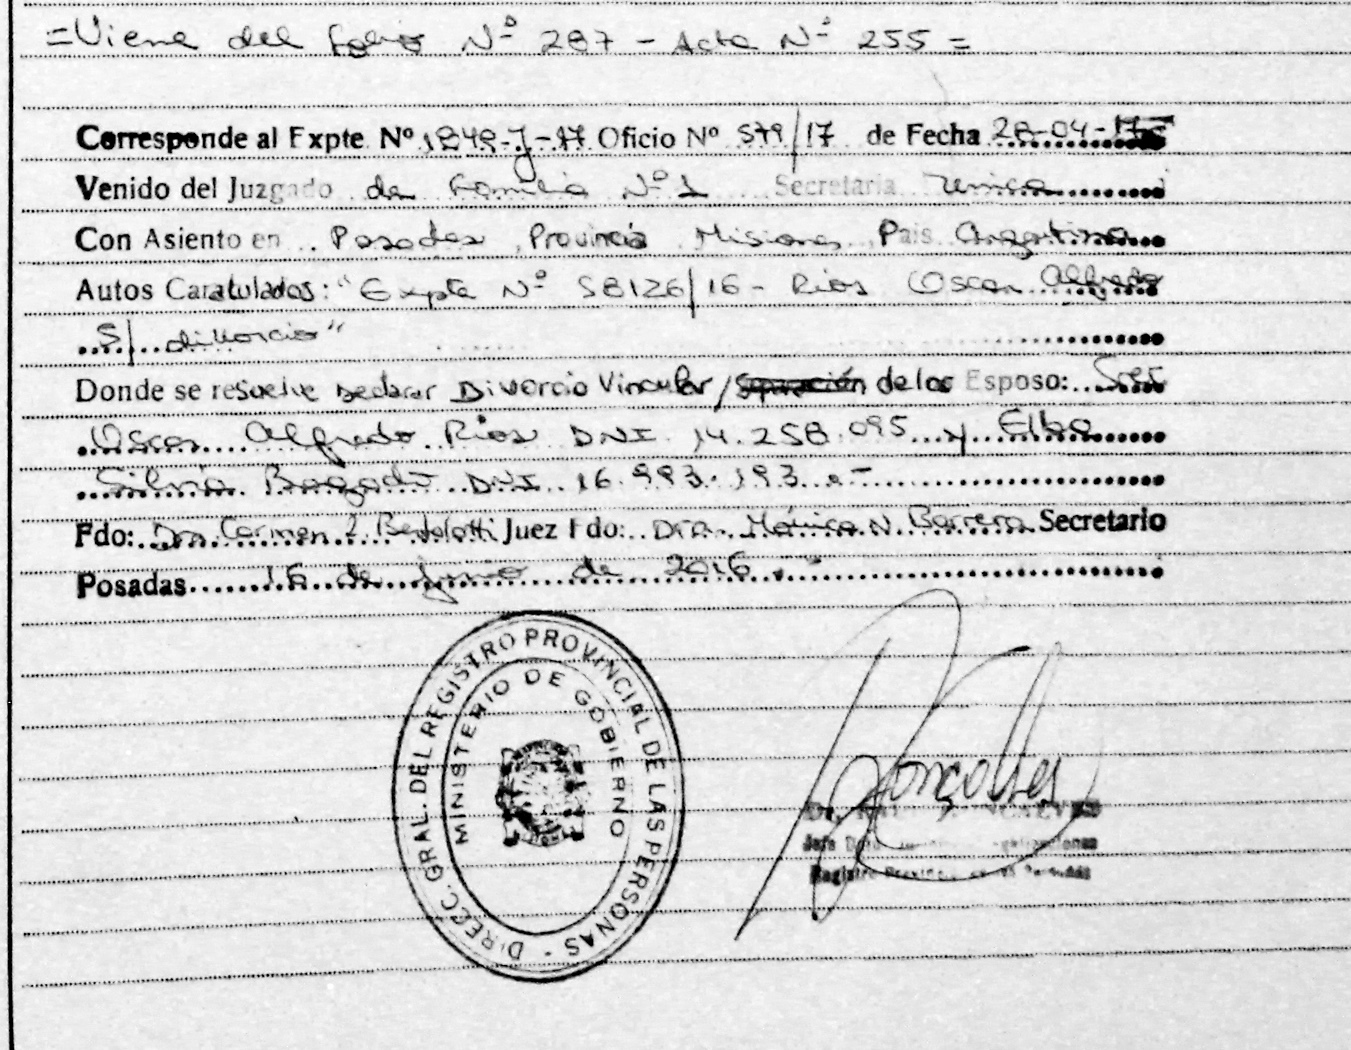 =Viene del folio Nº 287 - Acta Nº 255=
Corresponde al Expte Nº 1848-J-17 Oficio Nº 579/17 de Fecha 28-04-17
Venido del Juzgado de Familia Nº 1 Secretaria Unica
Con Asiento en Posadas, Provincia Misiones País Argentina
Autos Caratulados: "Expte Nº 58126/16 - Rios Oscar Alfredo
S/ divorcio"
Donde se resuelve Declarar Divorcio Vincular/Separación de los Esposo: Sres
Oscar Alfredo Rios DNI 14.258.095 y Elba
Silvia Bogado DNI 16.993.193.-
Fdo: Dra. Carmen Bertolotti Juez Fdo: Dra. Mónica N. Barrera Secretario
Posadas 16 de junio de 2016.-
DIRECC. GRAL. DEL REGISTRO PROVINCIAL DE LAS PERSONAS -
MINISTERIO DE GOBIERNO
Jefa
Registro